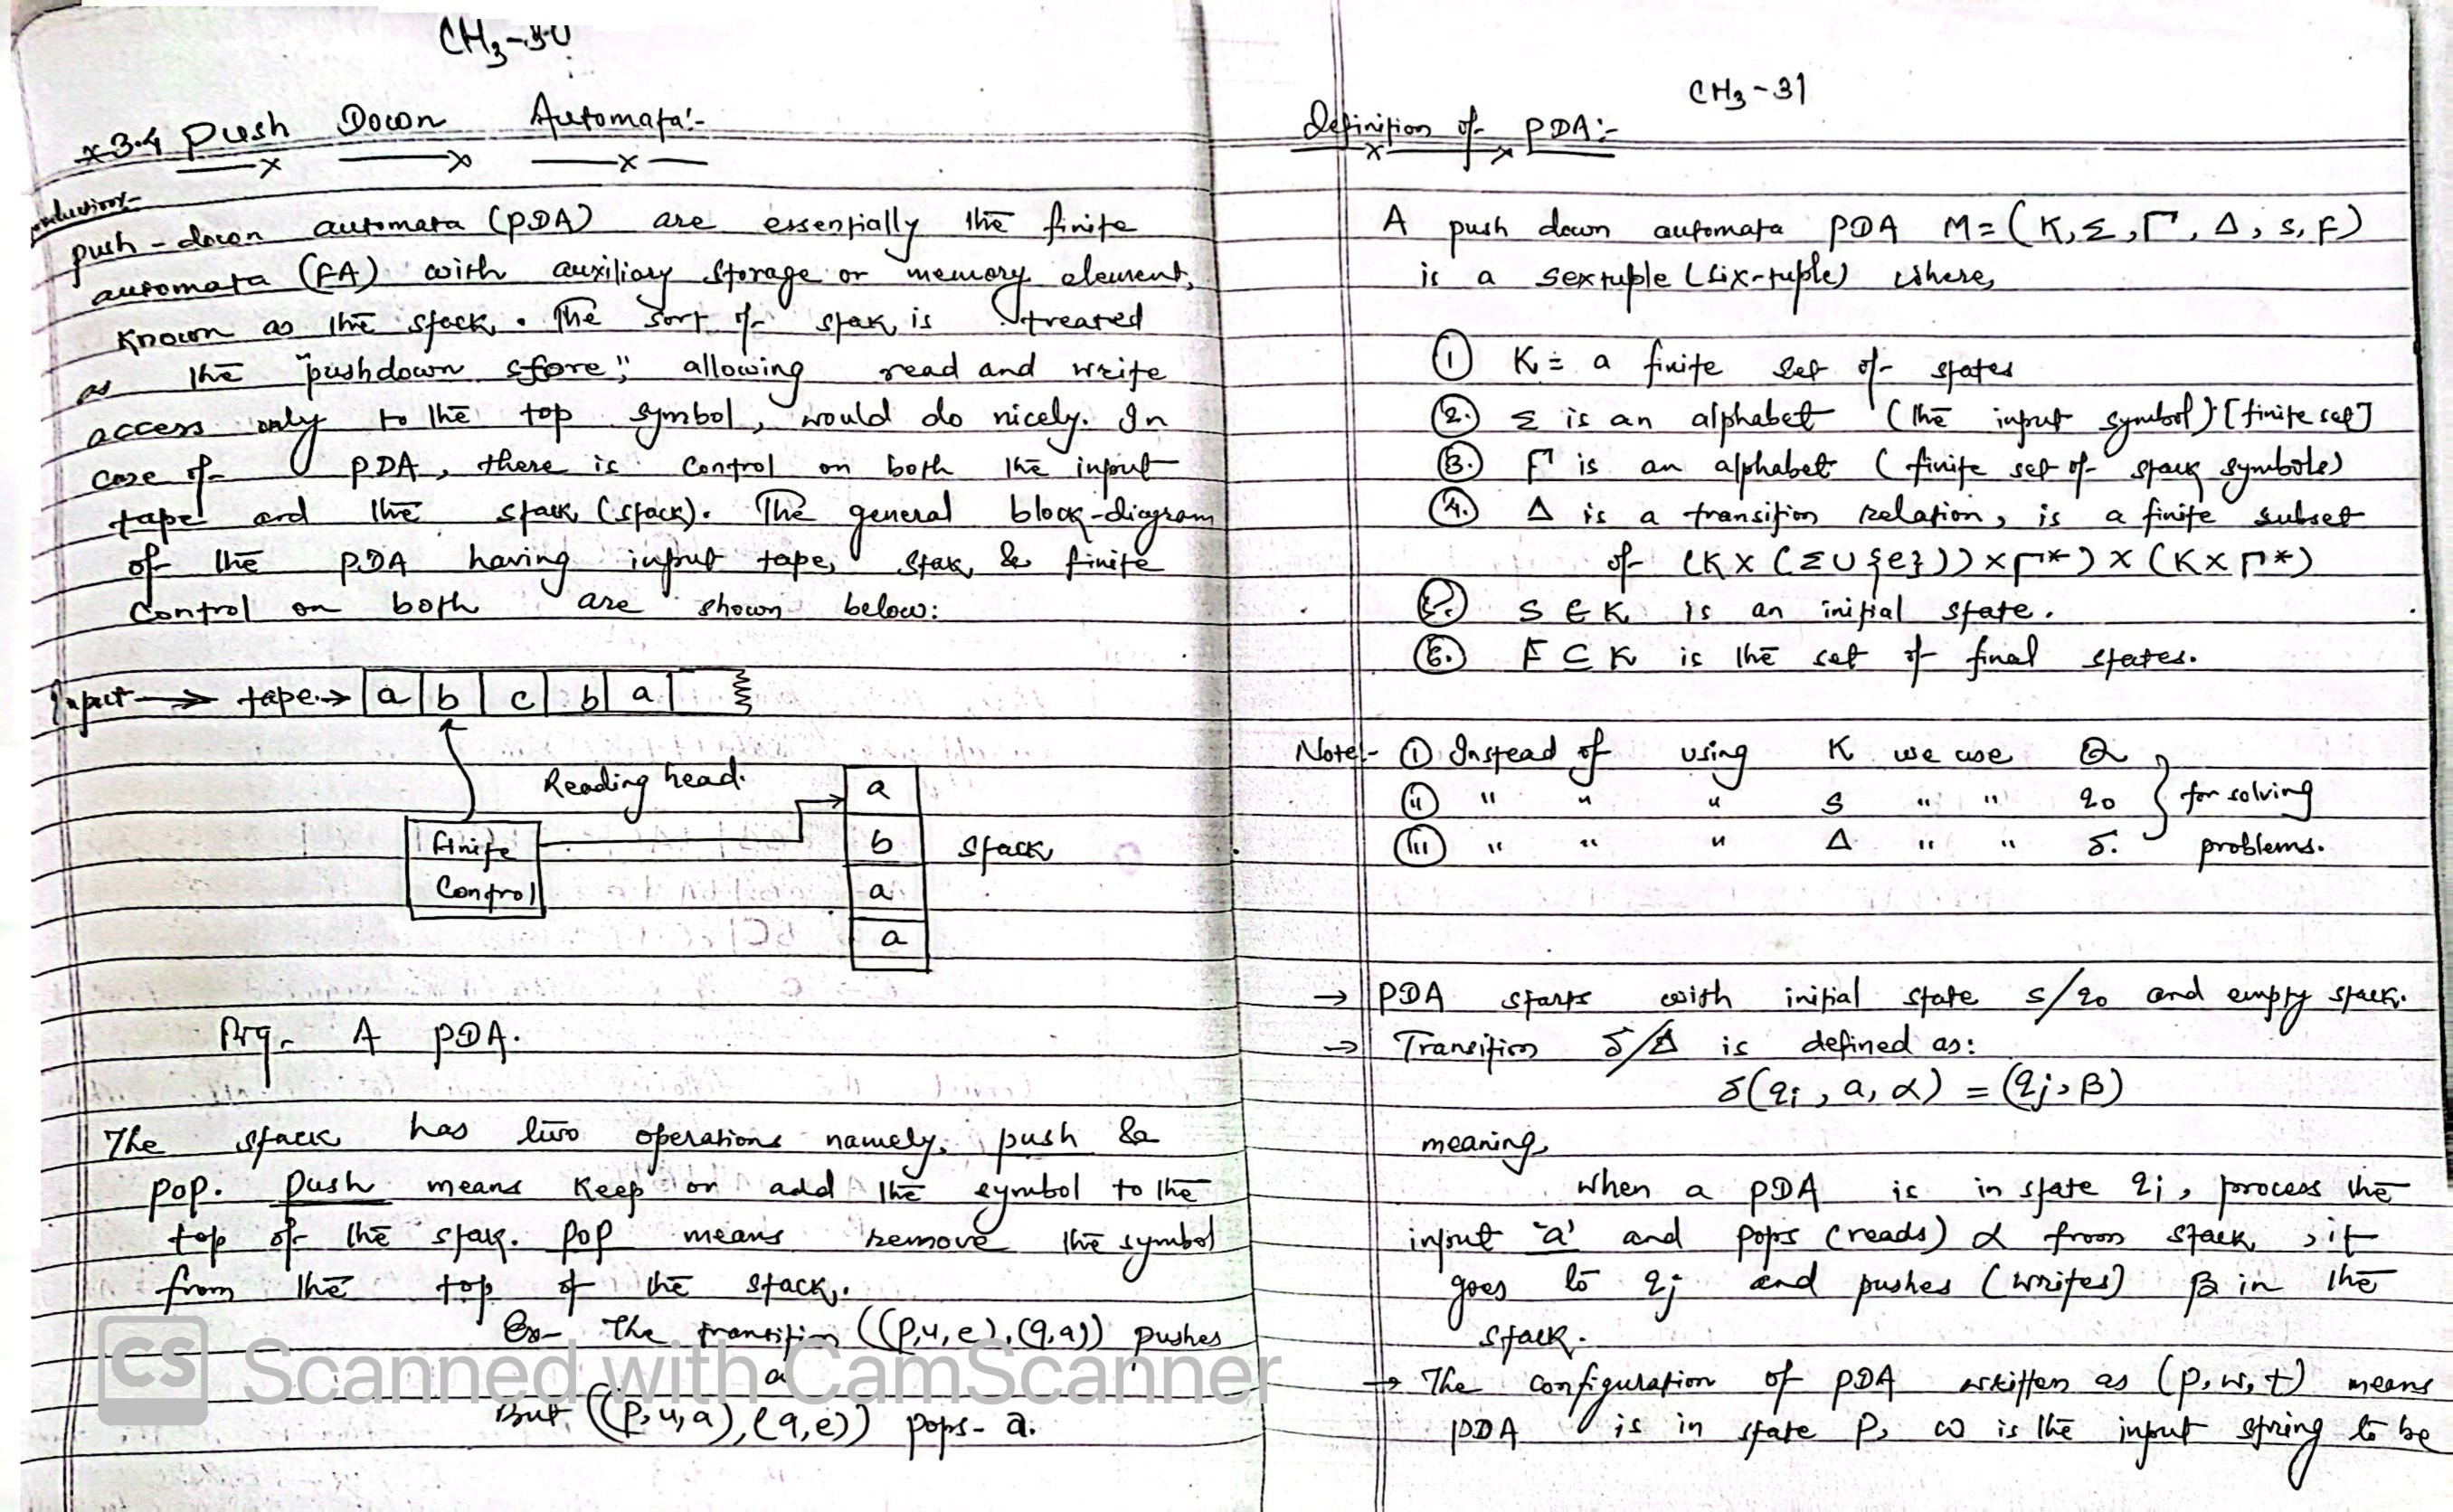 CH3-30
x3.4 Push Down Automata:-
push-down automata (PDA) are essentially the finite
automata (FA) with auxiliary storage or memory element,
known as the stack. The sort of stak is treated
as the "pushdown store", allowing read and write
access only to the top symbol, would do nicely. In
case of PDA, there is control on both the input
tape and the stak (stack). The general block-diagram
of the PDA having input tape, stak & finite
control on both are shown below:
Input → tape → a b c b a
Reading head.
Finite
Control
a
b
a
a
stack
Fig- A PDA.
The stack has two operations namely, push &
pop. Push means keep or add the symbol to the
top of the stak. Pop means remove the symbol
from the top of the stack.
Ex- The transition ((p,u,e),(q,a)) pushes
a
But ((p,u,a),(q,e)) pops- a.
CS Scanned with CamScanner
CH3-31
Definition of PDA:-
A push down automata PDA M=(K,Σ,Γ,Δ,s,F)
is a sextuple (six-tuple) where,
① K = a finite set of states
②. Σ is an alphabet (the input symbol) [finite set]
③. Γ is an alphabet (finite set of stack symbols)
④. Δ is a transition relation, is a finite subset
of (K×(Σ∪{e}))×Γ*)×(K×Γ*)
⑤. S ∈ K is an initial state.
⑥. F ⊆ K is the set of final states.
Note:- ① Instead of using K we use Q
(ii) " " " S " " q0 } for solving
(iii) " " " Δ " " δ. problems.
→ PDA starts with initial state s/q0 and empty stack.
→ Transition δ/Δ is defined as:
δ(qi, a, α) = (qj, β)
meaning,
When a PDA is in state qi, process the
input 'a' and pops (reads) α from stack, it
goes to qj and pushes (writes) β in the
stack.
→ The configuration of PDA written as (p,w,t) means
PDA is in state P, ω is the input string to be